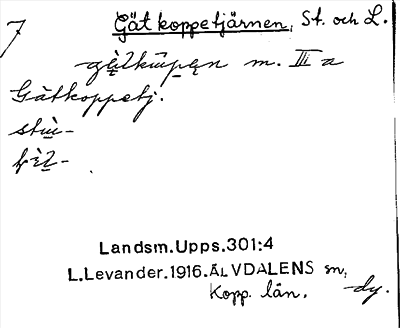 7 Gåtkoppetjärnen, St. och L.
m. III a
Gåtkoppetj.
Landsm.Upps.301:4
L.Levander.1916.ÄLVDALENS sn,
Kopp. län. dy.